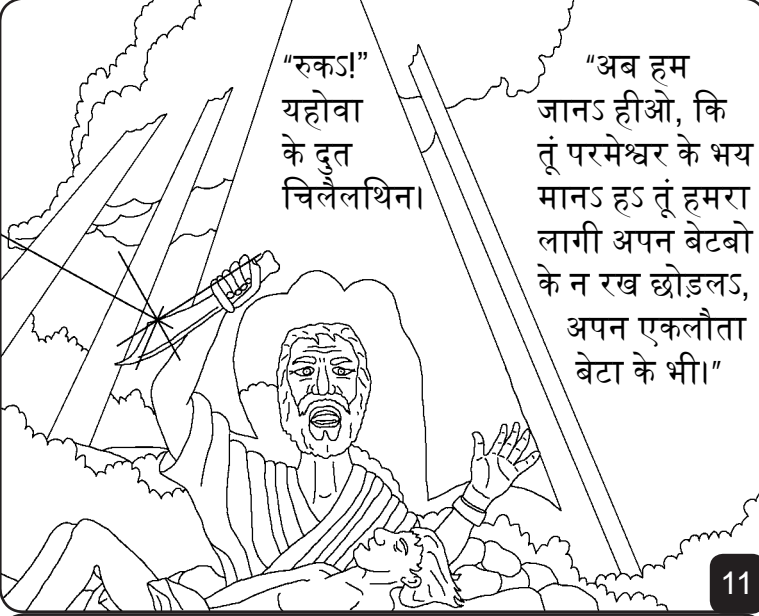 “रुकऽ!”
यहोवा
के दुत
चिलैलथिन।
“अब हम
जानऽ हीओ, कि
तूं परमेश्वर के भय
मानऽ हऽ तूं हमरा
लागी अपन बेटबो
के न रख छोड़लऽ,
अपन एकलौता
बेटा के भी।”
11